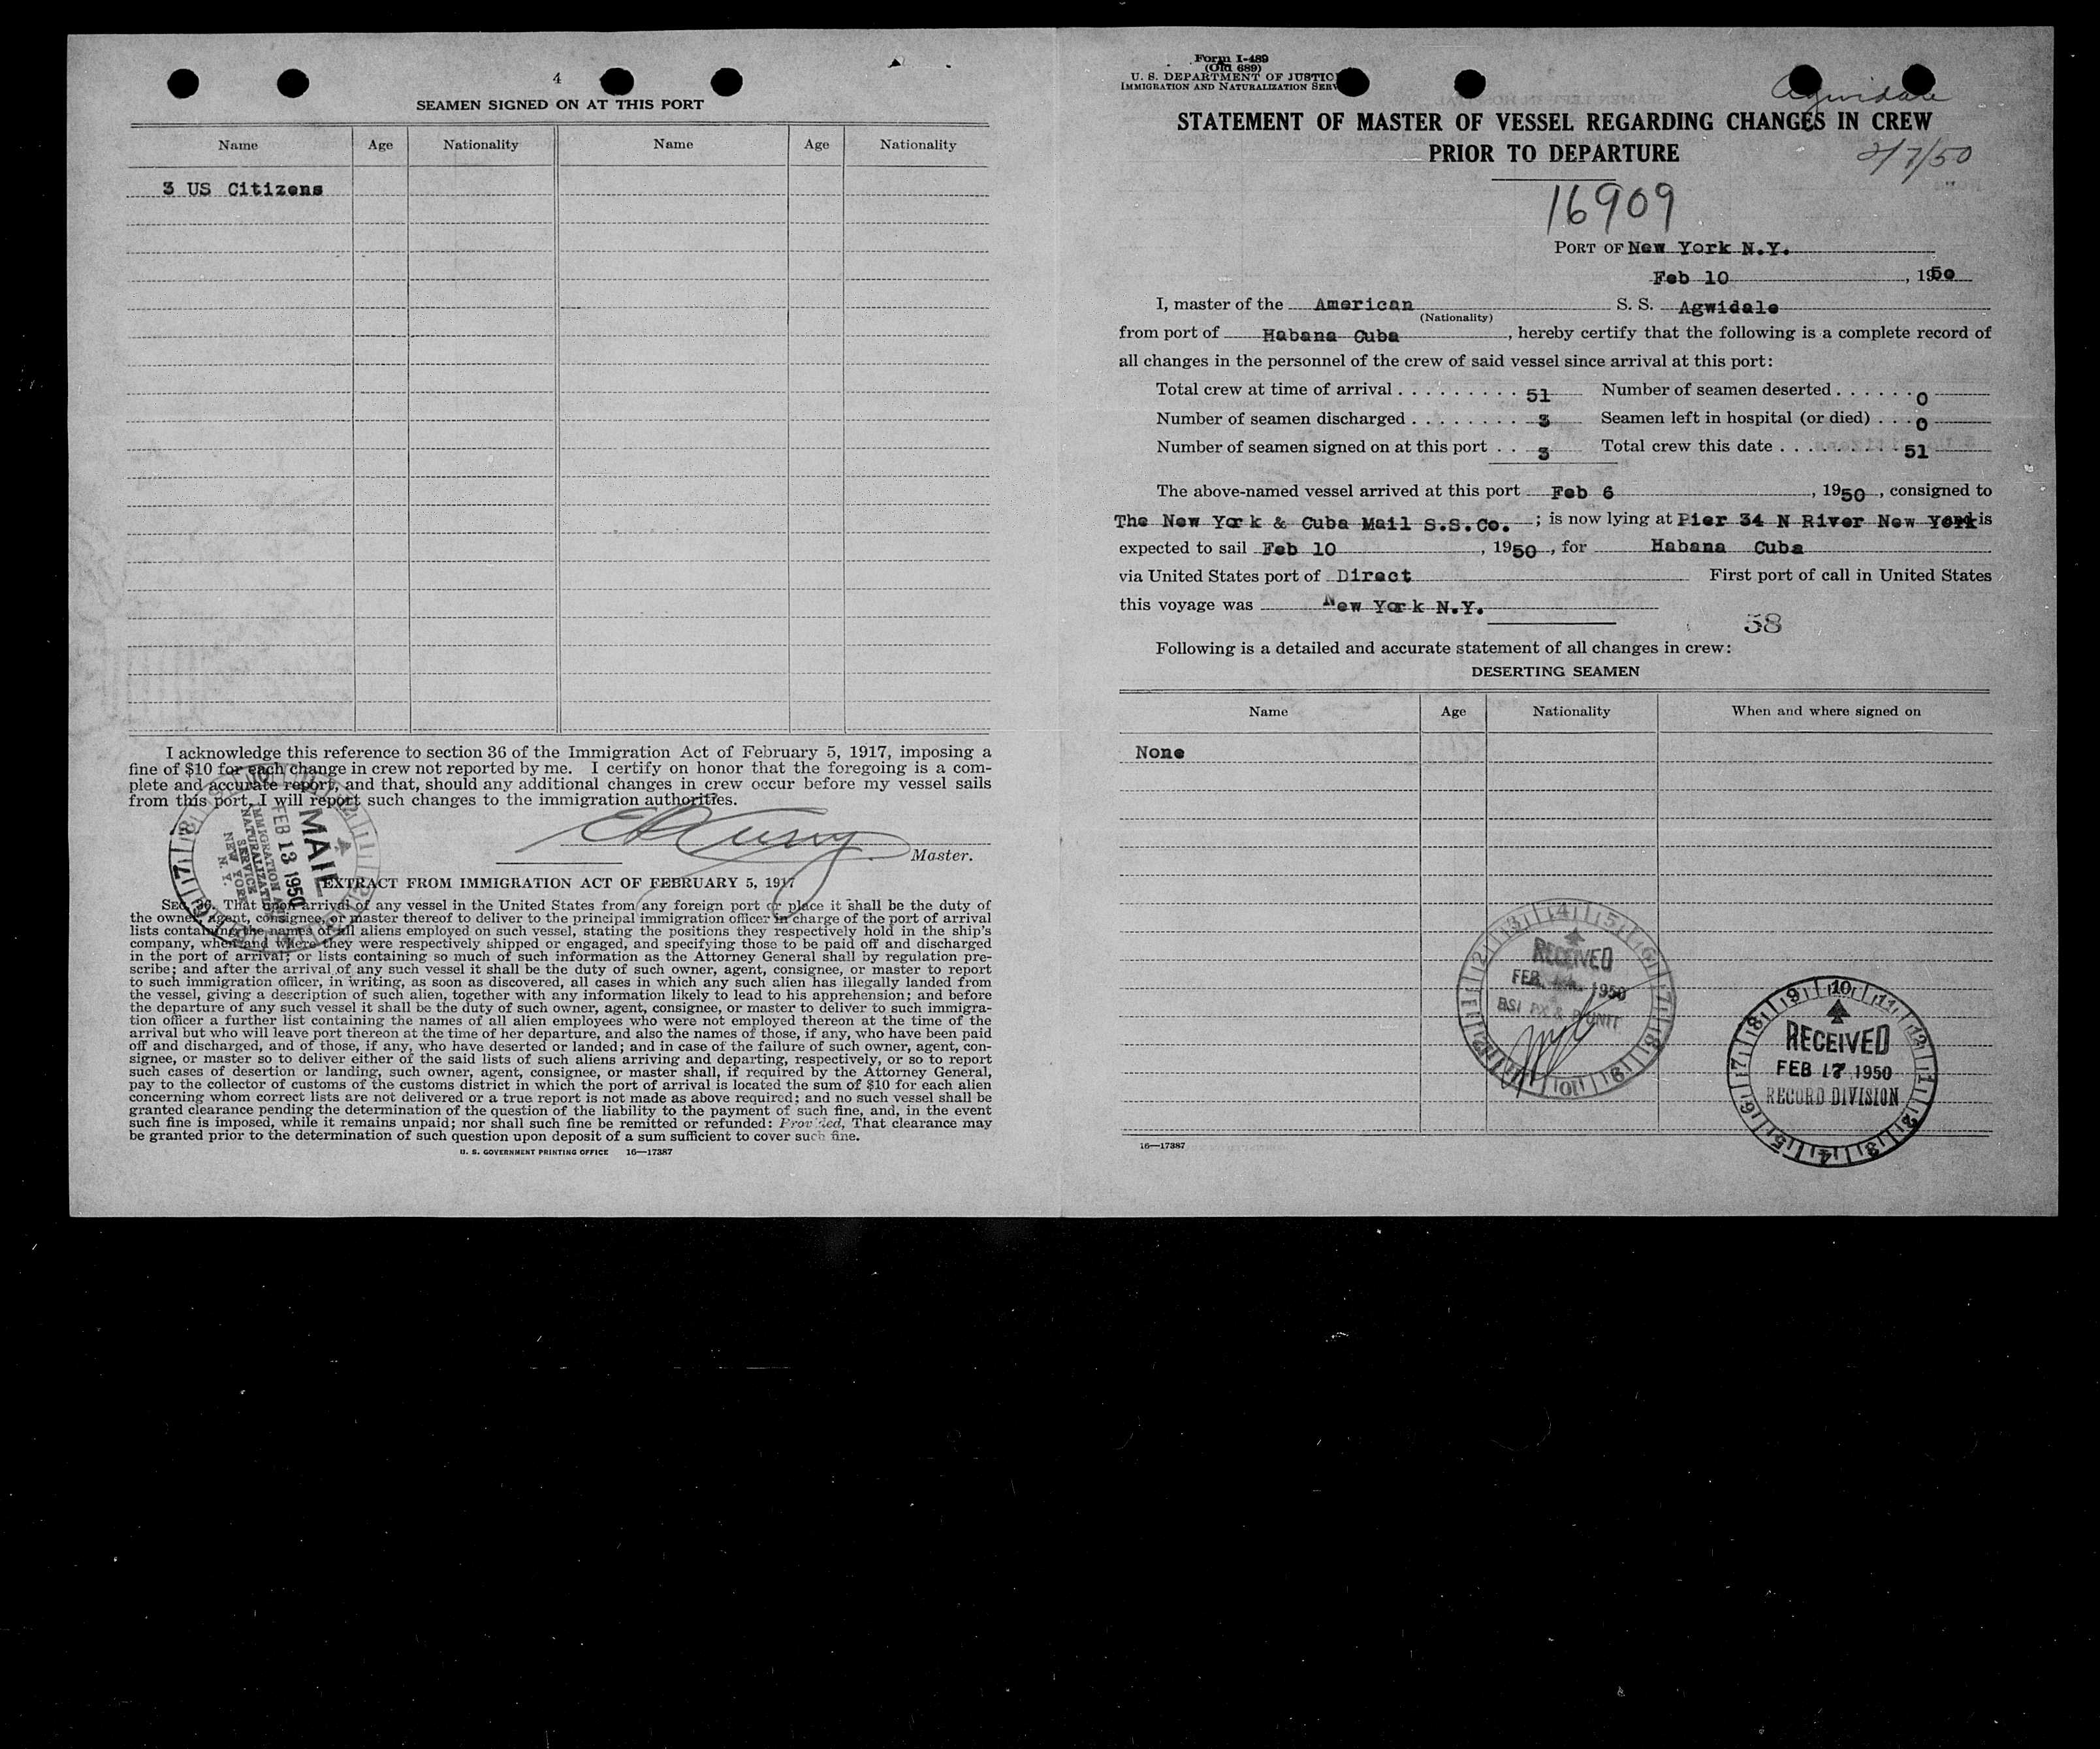 4
SEAMEN SIGNED ON AT THIS PORT
Name Age Nationality Name Age Nationality
3 US Citizens
I acknowledge this reference to section 36 of the Immigration Act of February 5, 1917, imposing a
fine of $10 for each change in crew not reported by me. I certify on honor that the foregoing is a com-
plete and accurate report, and that, should any additional changes in crew occur before my vessel sails
from this port, I will report such changes to the immigration authorities.
Master.
MAIL
FEB 13 1950
IMMIGRATION AND
NATURALIZATION
SERVICE
NEW YORK
N. Y.
EXTRACT FROM IMMIGRATION ACT OF FEBRUARY 5, 1917
SEC. 36. That upon arrival of any vessel in the United States from any foreign port or place it shall be the duty of
the owner, agent, consignee, or master thereof to deliver to the principal immigration officer in charge of the port of arrival
lists containing the names of all aliens employed on such vessel, stating the positions they respectively hold in the ship's
company, when and where they were respectively shipped or engaged, and specifying those to be paid off and discharged
in the port of arrival; or lists containing so much of such information as the Attorney General shall by regulation pre-
scribe; and after the arrival of any such vessel it shall be the duty of such owner, agent, consignee, or master to report
to such immigration officer, in writing, as soon as discovered, all cases in which any such alien has illegally landed from
the vessel, giving a description of such alien, together with any information likely to lead to his apprehension; and before
the departure of any such vessel it shall be the duty of such owner, agent, consignee, or master to deliver to such immigra-
tion officer a further list containing the names of all alien employees who were not employed thereon at the time of the
arrival but who will leave port thereon at the time of her departure, and also the names of those, if any, who have been paid
off and discharged, and of those, if any, who have deserted or landed; and in case of the failure of such owner, agent, con-
signee, or master so to deliver either of the said lists of such aliens arriving and departing, respectively, or so to report
such cases of desertion or landing, such owner, agent, consignee, or master shall, if required by the Attorney General,
pay to the collector of customs of the customs district in which the port of arrival is located the sum of $10 for each alien
concerning whom correct lists are not delivered or a true report is not made as above required; and no such vessel shall be
granted clearance pending the determination of the question of the liability to the payment of such fine, and, in the event
such fine is imposed, while it remains unpaid; nor shall such fine be remitted or refunded: Provided, That clearance may
be granted prior to the determination of such question upon deposit of a sum sufficient to cover such fine.
U. S. GOVERNMENT PRINTING OFFICE 16—17387
Form I-489
(Old 689)
U. S. DEPARTMENT OF JUSTIC
IMMIGRATION AND NATURALIZATION SERV
Agwidale
STATEMENT OF MASTER OF VESSEL REGARDING CHANGES IN CREW
PRIOR TO DEPARTURE
2/7/50
16909
PORT OF New York N.Y.
Feb 10, 1950
I, master of the American S. S. Agwidale
(Nationality)
from port of Habana Cuba, hereby certify that the following is a complete record of
all changes in the personnel of the crew of said vessel since arrival at this port:
Total crew at time of arrival . . . . . . . . . 51 Number of seamen deserted . . . . . . 0
Number of seamen discharged . . . . . . . . 3 Seamen left in hospital (or died) . . . 0
Number of seamen signed on at this port . . 3 Total crew this date . . . . . . . . . 51
The above-named vessel arrived at this port Feb 6, 1950, consigned to
The New York & Cuba Mail S.S.Co.; is now lying at Pier 34 N River New York and is
expected to sail Feb 10, 1950, for Habana Cuba
via United States port of Direct First port of call in United States
this voyage was New York N.Y.
58
Following is a detailed and accurate statement of all changes in crew:
DESERTING SEAMEN
Name Age Nationality When and where signed on
None
RECEIVED
FEB 1950
RECEIVED
FEB 17 1950
RECORD DIVISION
16—17387